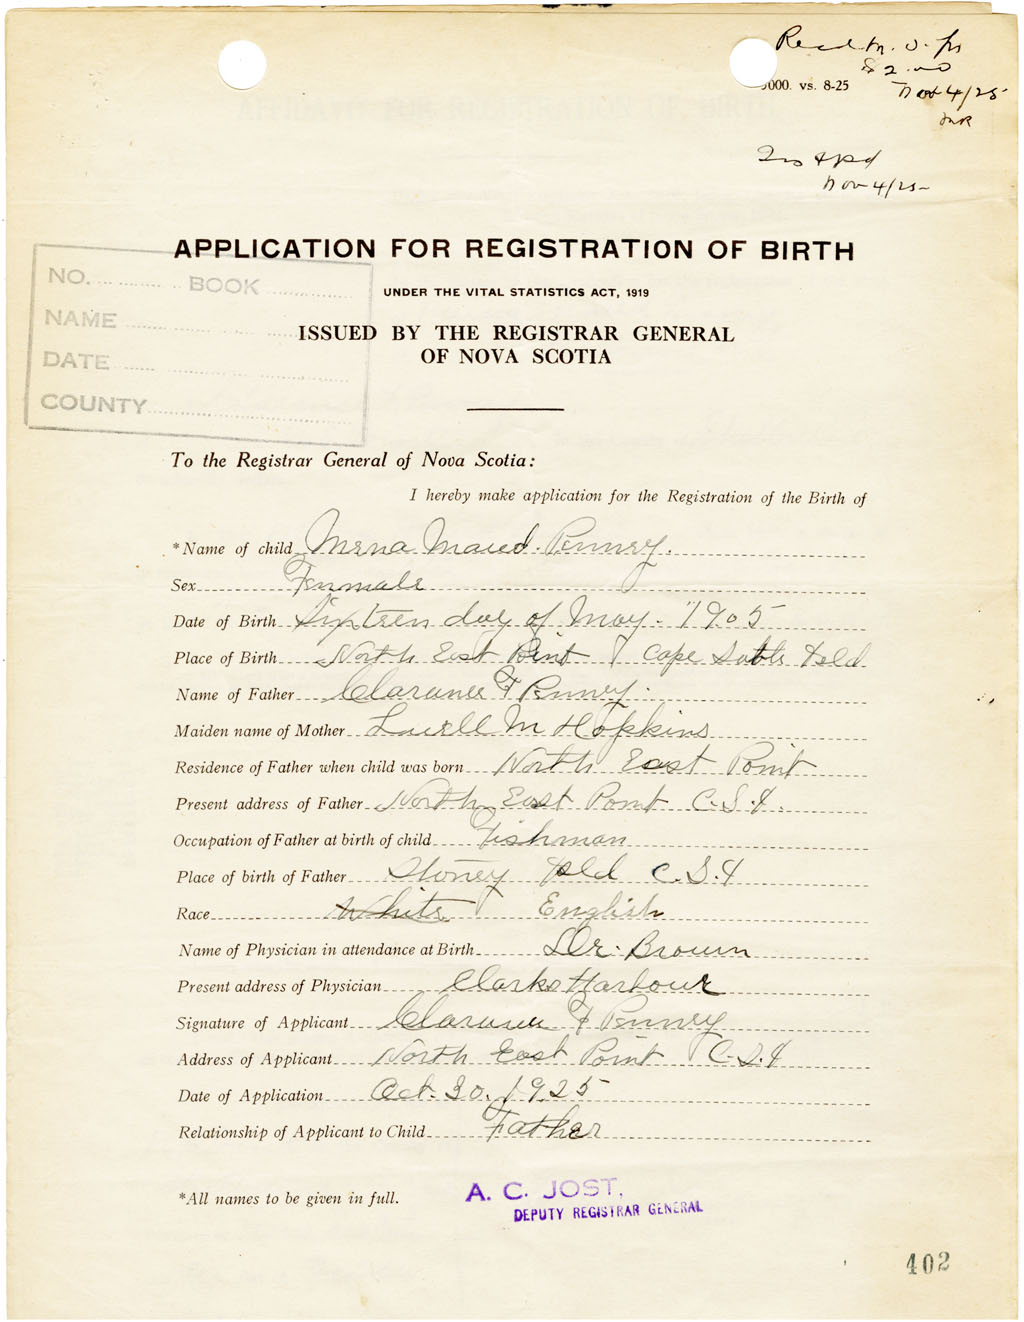 Recd M. O. for
$2.00
Nov 4/25
000. vs. 8-25
Nov 4/25
APPLICATION FOR REGISTRATION OF BIRTH
UNDER THE VITAL STATISTICS ACT, 1919
ISSUED BY THE REGISTRAR GENERAL
OF NOVA SCOTIA
NO. BOOK
NAME
DATE
COUNTY
To the Registrar General of Nova Scotia:
I hereby make application for the Registration of the Birth of
*Name of child Mena Maud Penney.
Sex Femmale
Date of Birth Sixteen day of May. 1905
Place of Birth North East Point Cape Sable Isld
Name of Father Clarance F Penney.
Maiden name of Mother Luell M Hopkins
Residence of Father when child was born North East Point
Present address of Father North East Point C.S.I.
Occupation of Father at birth of child Fishman
Place of birth of Father Stoney Isld C.S.I
Race White English
Name of Physician in attendance at Birth Dr. Brown
Present address of Physician Clarks Harbour
Signature of Applicant Clarance F Penney
Address of Applicant North East Point C.S.I
Date of Application Oct. 30. 1925
Relationship of Applicant to Child Father
*All names to be given in full.
A. C. JOST,
DEPUTY REGISTRAR GENERAL
402